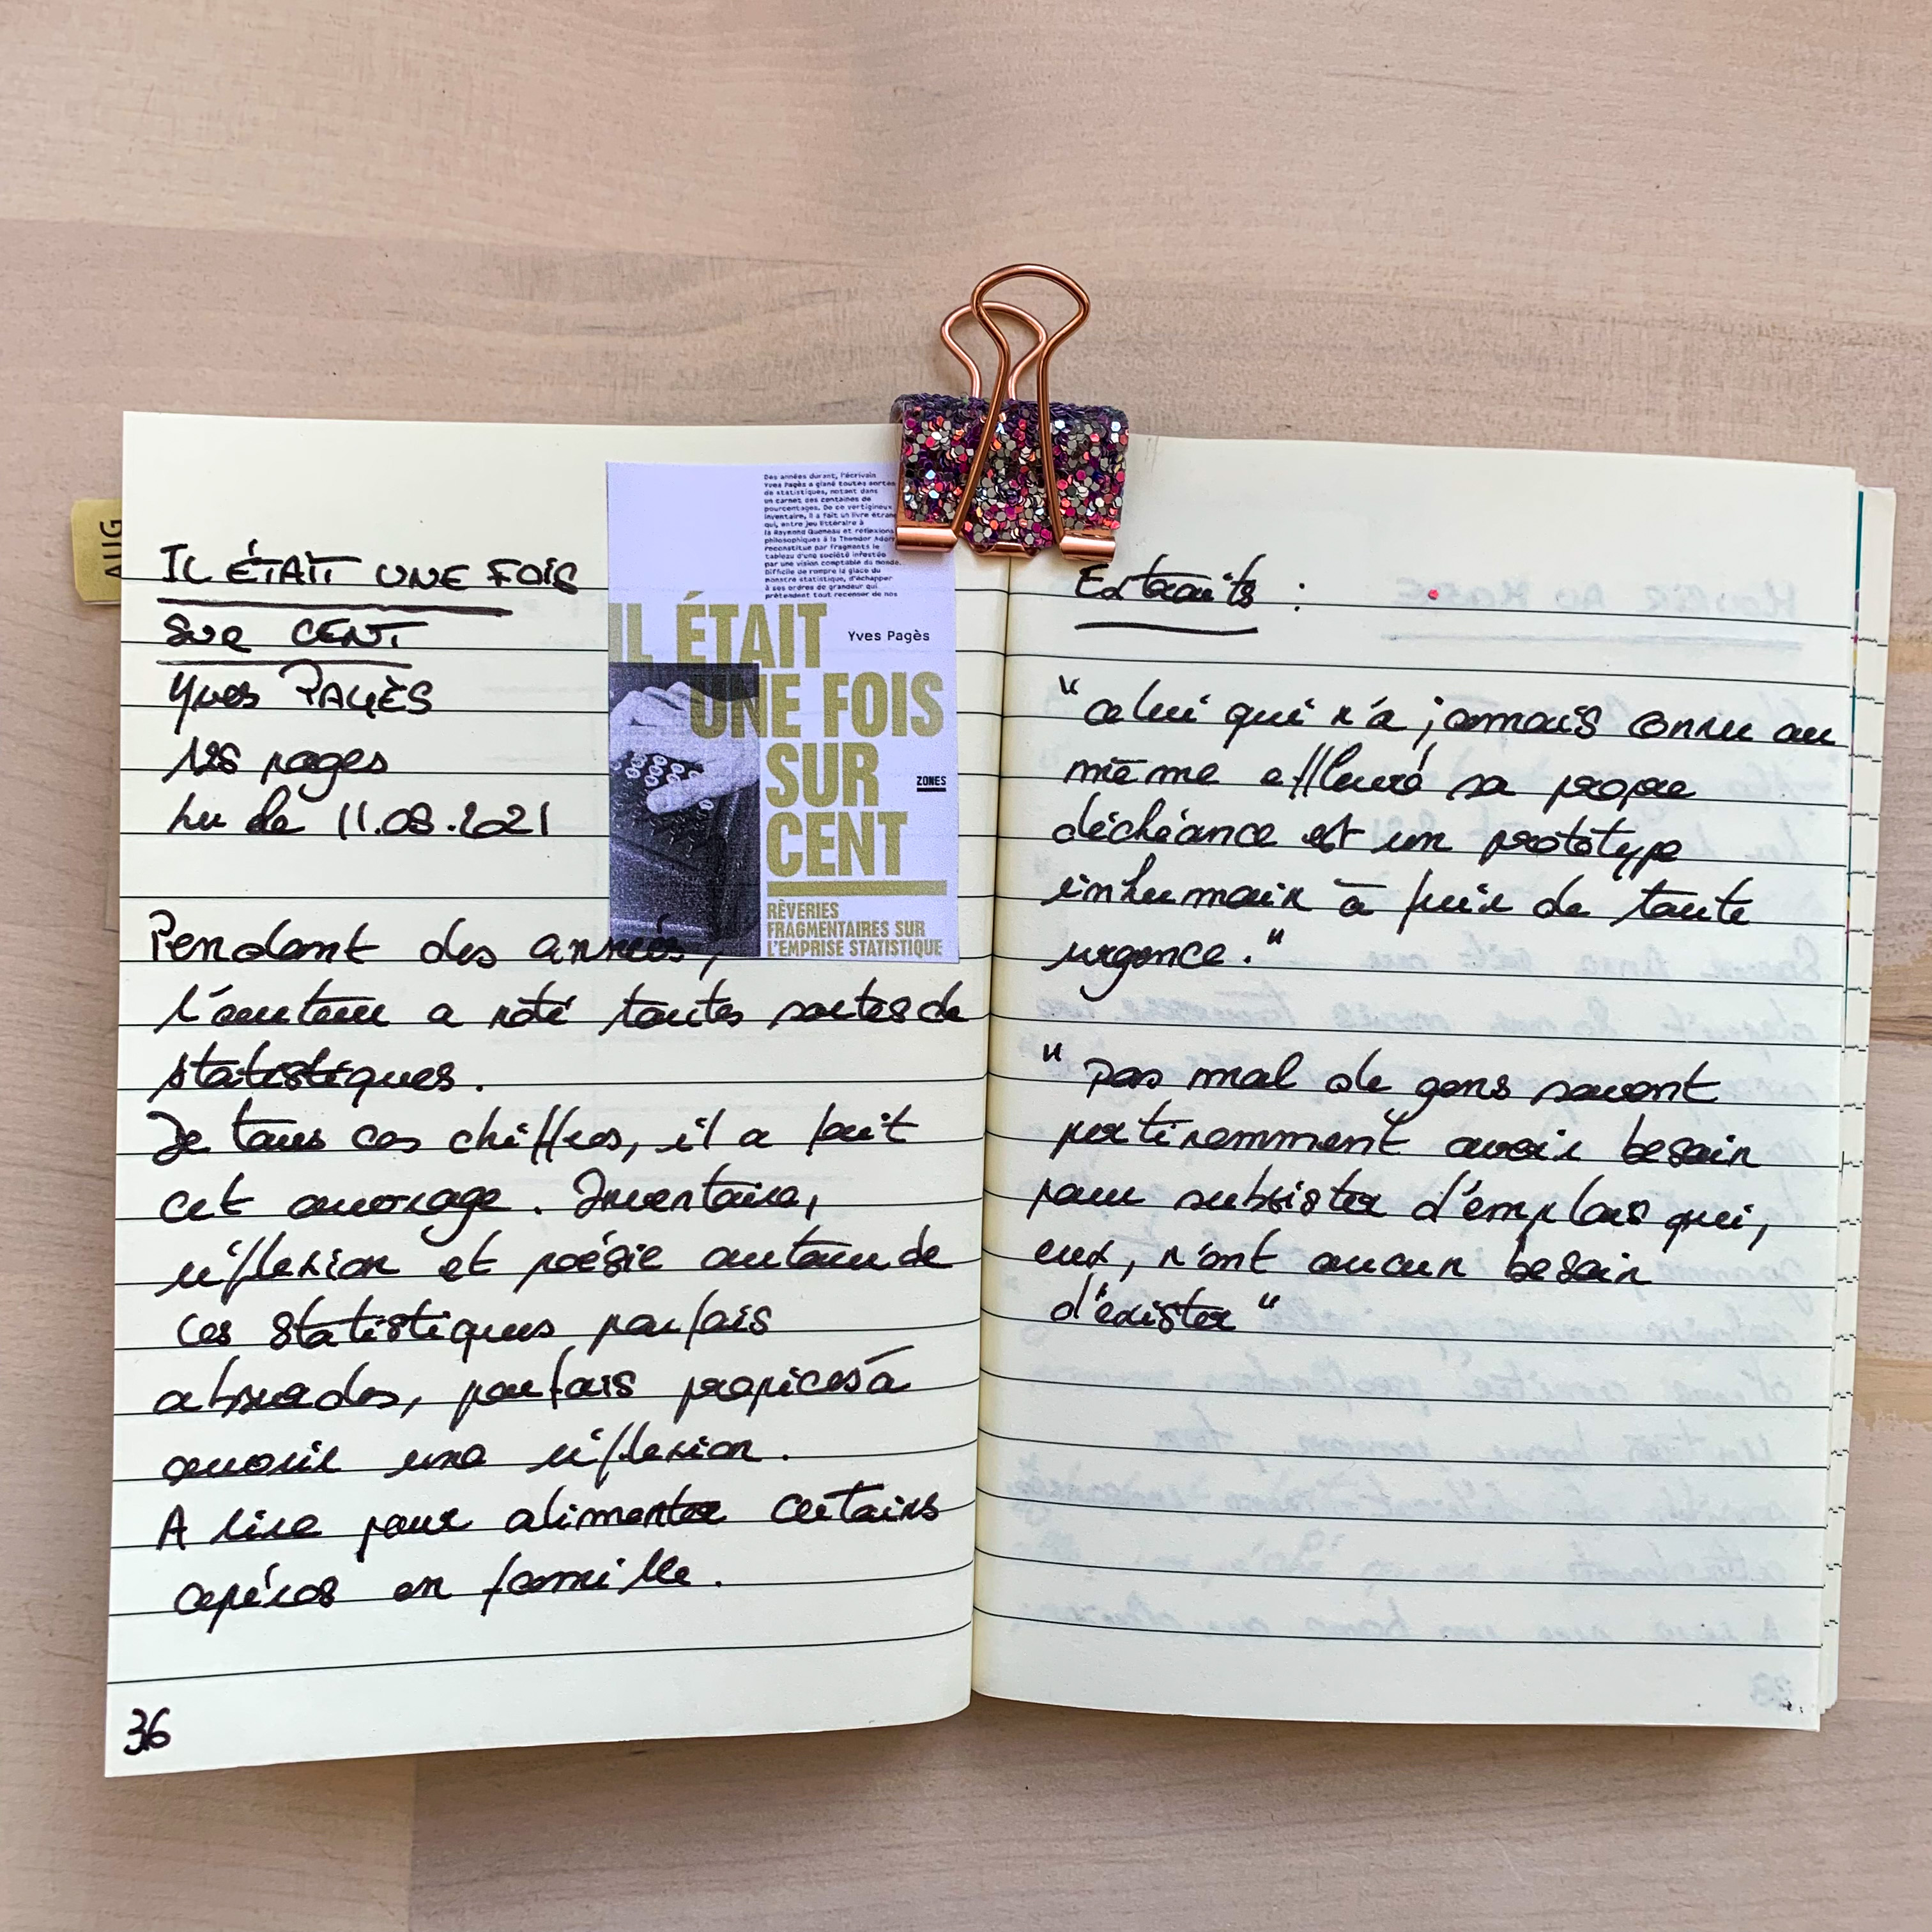 AUG
IL ÉTAIT UNE FOIS
SUR CENT
Yves PAGÈS
pages
Lu le 11.08.2021
Pendant des années,
l'auteur a noté toutes sortes de
statistiques.
De tous ces chiffres, il a fait
cet ouvrage. Inventaire,
réflexion et poésie autour de
ces statistiques parfois
absurdes, parfois propices à
avoir une réflexion.
A lire pour alimenter certains
apéros en famille.
36
Des années durant, l'écrivain
Yves Pagès a glané toutes sortes
de statistiques, notant dans
un carnet des centaines de
pourcentages. De ce vertigineux
inventaire, il a fait un livre étran
qui, entre jeu littéraire à
la Raymond Queneau et réflexions
philosophiques à la Theodor Ador
reconstitue par fragments le
tableau d'une société infestée
par une vision comptable du monde.
Difficile de rompre la glace du
monstre statistique, d'échapper
à ses ordres de grandeur qui
prétendent tout recenser de nos
IL ÉTAIT
Yves Pagès
UNE FOIS
SUR
ZONES
CENT
RÊVERIES
FRAGMENTAIRES SUR
L'EMPRISE STATISTIQUE
Extraits :
"celui qui n'a jamais connu ou
même effleuré sa propre
déchéance est un prototype
inhumain à fuir de toute
urgence."
"Pas mal de gens savent
pertinemment avoir besoin
pour subsister d'emplois qui,
eux, n'ont aucun besoin
d'exister"